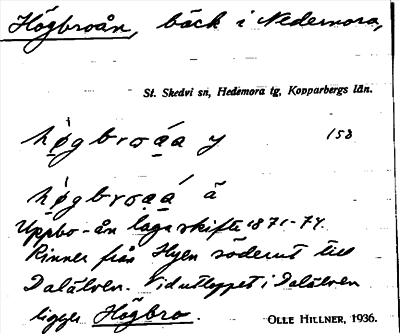 Högbroån, bäck i Nedernora,
St. Skedvi sn, Hedemora tg, Kopparbergs län.
158
Uppbo-ån laga skifte 1871-74.
Rinner från Hyen söderut till
Dalälven. Vid utloppet i Dalälven
ligger Högbro. OLLE HILLNER, 1936.